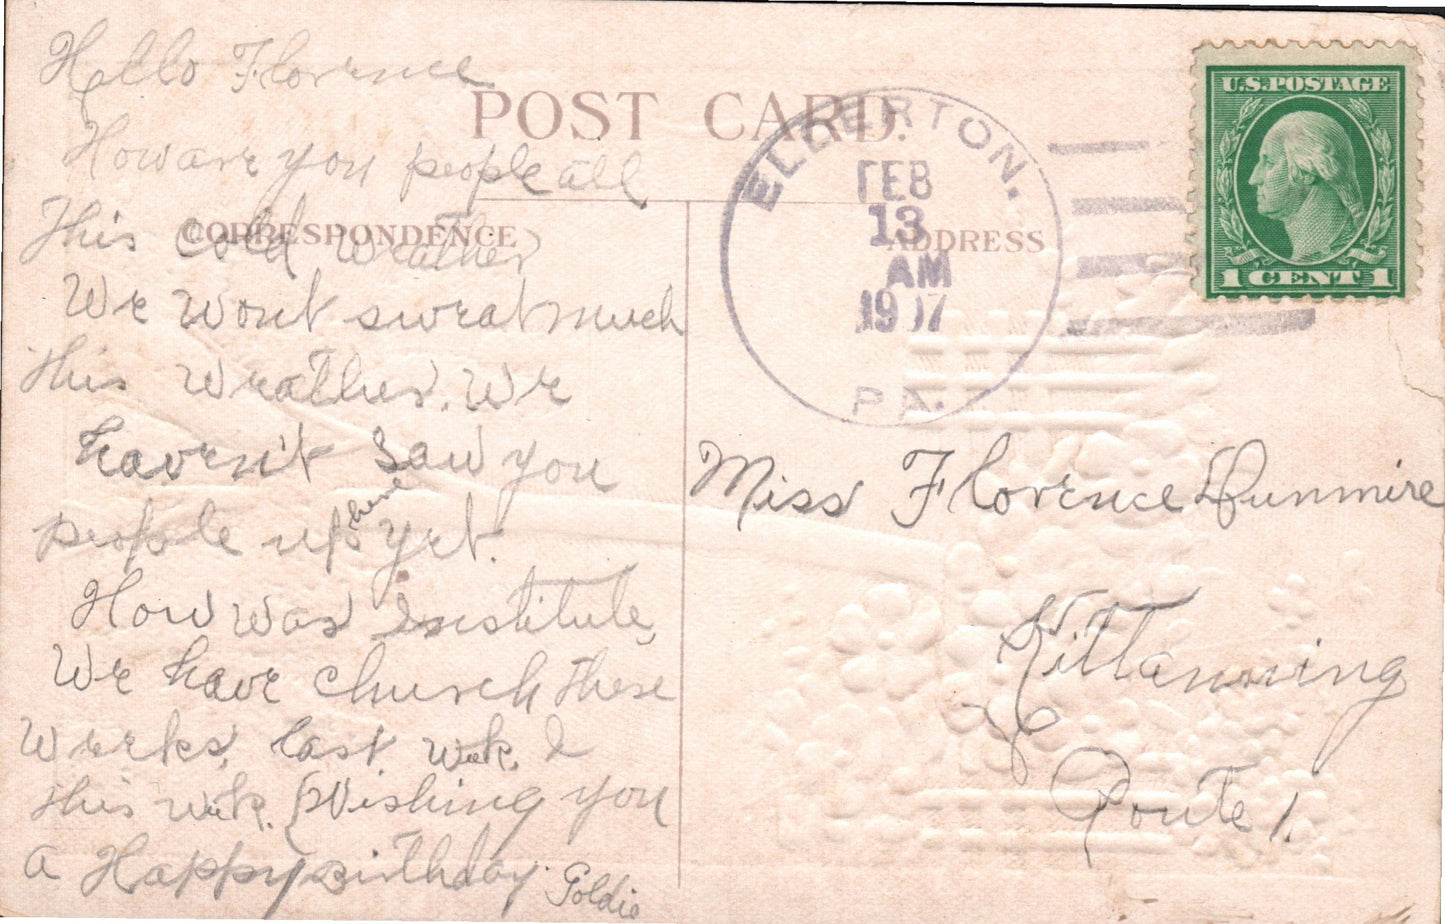 Hello Florence
POST CARD.
How are you people all
This cold weather
CORRESPONDENCE
We wont sweat much
this weather. We
haven't saw you
people up here yet.
How was Institute,
We have church these
weeks, last week &
this week. Wishing you
a Happy Birthday. Goldie
ELDERTON.
FEB
13
AM
1917
PA.
ADDRESS
U.S. POSTAGE
1 CENT 1
Miss Florence Dunmire
Kittanning
Route 1.